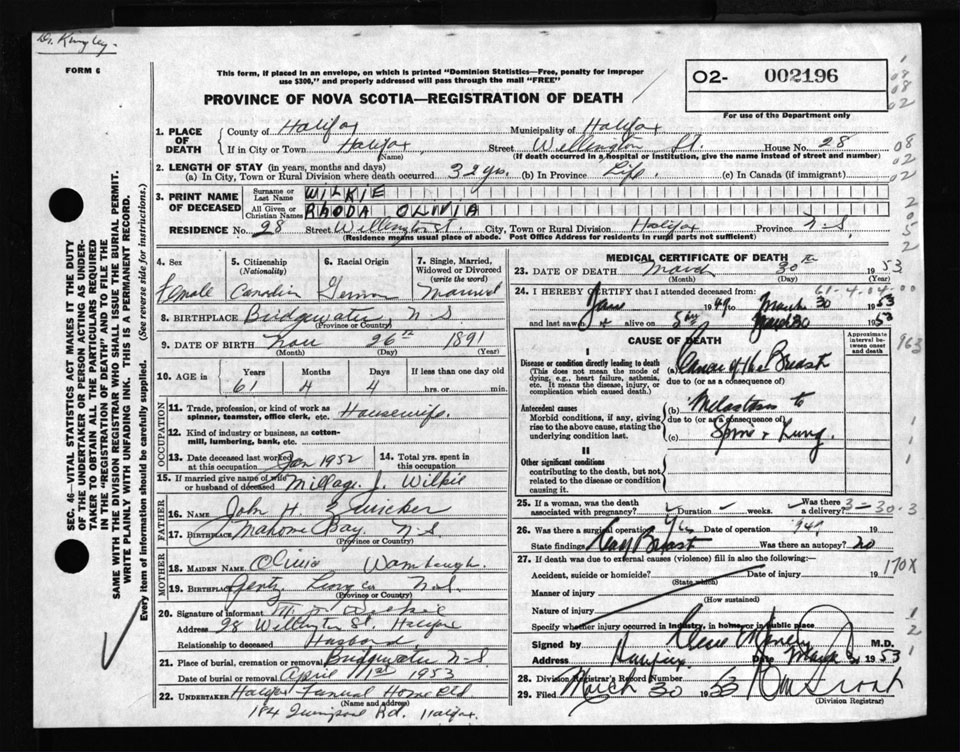 Dr. Kingley.
FORM 6
This form, if placed in an envelope, on which is printed "Dominion Statistics—Free, penalty for improper
use $300," and properly addressed will pass through the mail "FREE"
PROVINCE OF NOVA SCOTIA—REGISTRATION OF DEATH
02- 002196
For use of the Department only
1. PLACE OF DEATH
County of Halifax Municipality of Halifax
If in City or Town Halifax Street Wellington St. House No. 28
(Name) (If death occurred in a hospital or institution, give the name instead of street and number)
2. LENGTH OF STAY (in years, months and days)
(a) In City, Town or Rural Division where death occurred 32 yrs. (b) In Province Life. (c) In Canada (if immigrant)
3. PRINT NAME OF DECEASED
Surname or Last Name WILKIE
All Given or Christian Names RHODA OLIVIA
RESIDENCE No. 28 Street Wellington St. City, Town or Rural Division Halifax Province N-S
(Residence means usual place of abode. Post Office Address for residents in rural parts not sufficient)
4. Sex
Female
5. Citizenship
(Nationality)
Canadian
6. Racial Origin
German
7. Single, Married, Widowed or Divorced
(write the word)
Married
8. BIRTHPLACE Bridgewater, N-S
(Province or Country)
9. DATE OF BIRTH Nov 26th 1891
(Month) (Day) (Year)
10. AGE in Years Months Days If less than one day old
61 4 4 hrs. or min.
OCCUPATION
11. Trade, profession, or kind of work as Housewife.
spinner, teamster, office clerk, etc.
12. Kind of industry or business, as cotton-
mill, lumbering, bank, etc.
13. Date deceased last worked at this occupation Jan 1952
14. Total yrs. spent in this occupation
15. If married give name of wife or husband of deceased Millage J. Wilkie
FATHER
16. NAME John H. Zwicker
17. BIRTHPLACE Mahone Bay N-S.
(Province or Country)
MOTHER
18. MAIDEN NAME Olivia Wambaugh.
19. BIRTHPLACE N-S.
(Province or Country)
20. Signature of informant Wilkie
Address 28 Wellington St. Halifax
Relationship to deceased Husband
21. Place of burial, cremation or removal Bridgewater N-S.
Date of burial or removal April 1st 1953
22. UNDERTAKER Halifax Funeral Home Ltd
(Name and address)
184 Quinpool Rd. Halifax.
MEDICAL CERTIFICATE OF DEATH
23. DATE OF DEATH March 30th 1953
24. I HEREBY CERTIFY that I attended deceased from: 61-4-04-00
Jan 1949 to March 30 1953
and last saw h alive on March 30 1953
CAUSE OF DEATH
Approximate interval between onset and death
I
Disease or condition directly leading to death
(This does not mean the mode of dying, e.g., heart failure, asthenia, etc. It means the disease, injury, or complication which caused death.)
(a) Cancer of the Breast
due to (or as a consequence of)
Antecedent causes
Morbid conditions, if any, giving rise to the above cause, stating the underlying condition last.
(b) Metastasis to
due to (or as a consequence of)
(c) Spine & Lung.
II
Other significant conditions
contributing to the death, but not related to the disease or condition causing it.
25. If a woman, was the death associated with pregnancy? Duration — weeks. Was there a delivery?
3-30-3
26. Was there a surgical operation Date of operation 1949
State findings Breast Was there an autopsy? no
27. If death was due to external causes (violence) fill in also the following:
170X
Accident, suicide or homicide? Date of injury 19
(State which)
Manner of injury
(How sustained)
Nature of injury
Specify whether injury occurred in industry, in home or in public place
Signed by M.D.
Address Halifax Date March 31 1953
28. Division Registrar's Record Number
29. Filed March 30 53
(Division Registrar)
SEC. 46—VITAL STATISTICS ACT MAKES IT THE DUTY
OF THE UNDERTAKER OR PERSON ACTING AS UNDER-
TAKER TO OBTAIN ALL THE PARTICULARS REQUIRED
IN THE "REGISTRATION OF DEATH" AND TO FILE THE
SAME WITH THE DIVISION REGISTRAR WHO SHALL ISSUE THE BURIAL PERMIT.
WRITE PLAINLY WITH UNFADING INK. THIS IS A PERMANENT RECORD.
Every item of information should be carefully supplied. (See reverse side for instructions.)